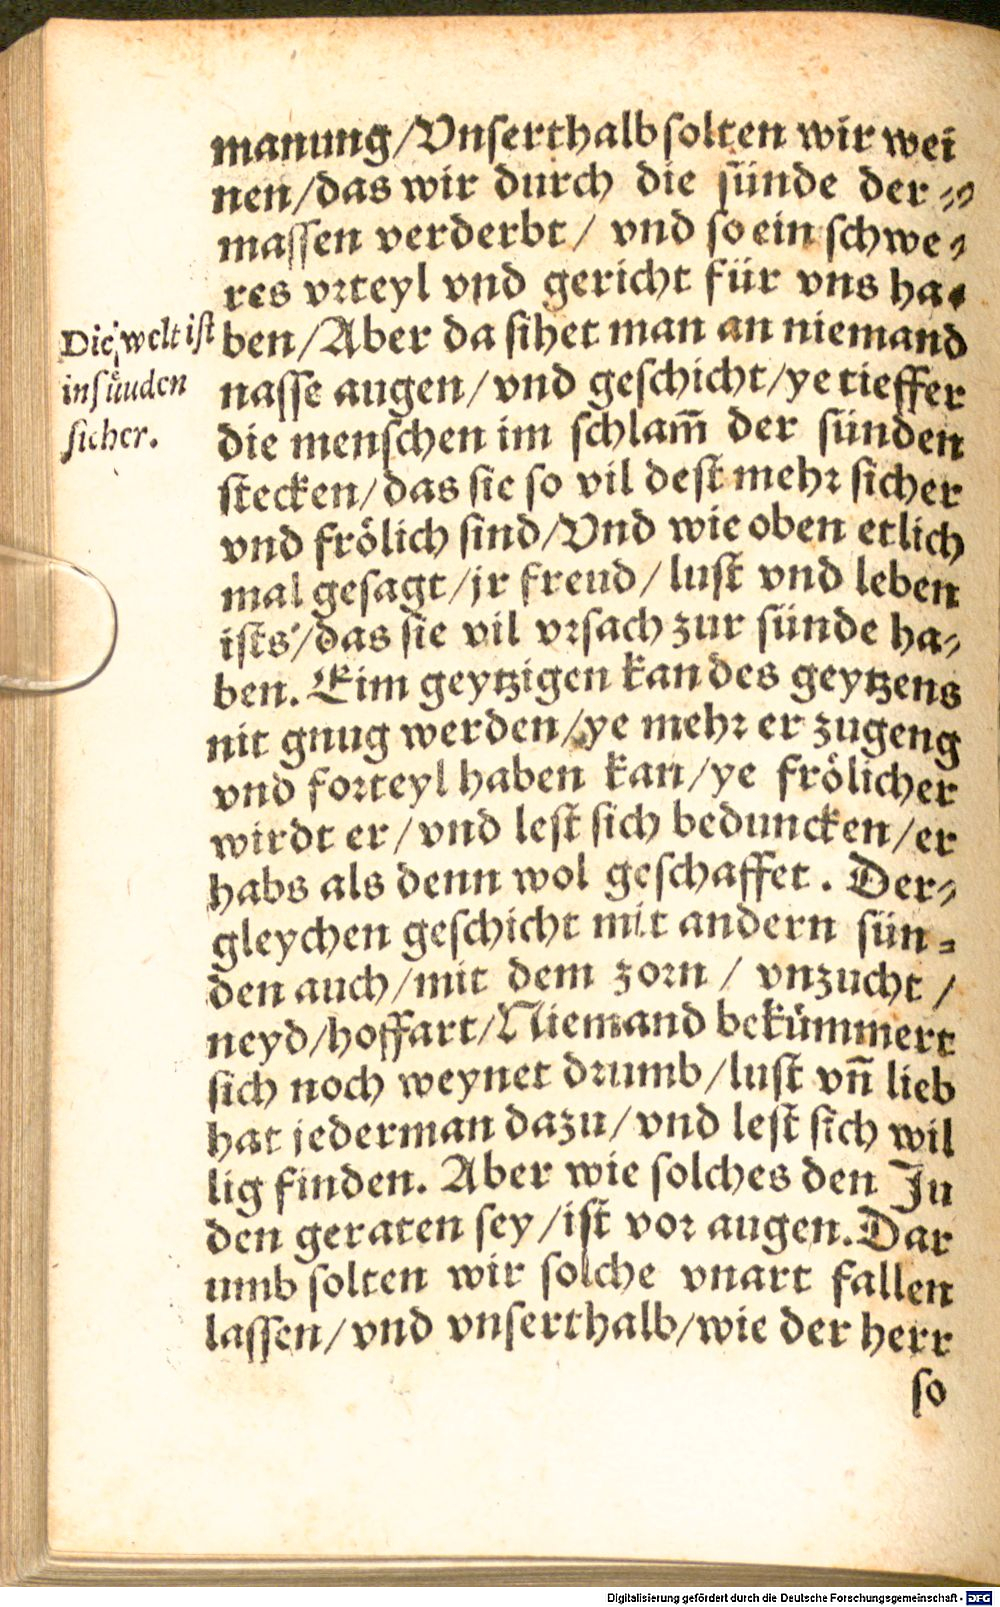 manung/Vnserthalb solten wir wei
nen/das wir durch die sünde der⸗
massen verderbt/ vnd so ein schwe⸗
res vrteyl vnd gericht für vns ha⸗
ben/Aber da sihet man an niemand
nasse augen/vnd geschicht/ye tieffer
die menschen im schlam̃ der sünden
stecken/das sie so vil dest mehr sicher
vnd frölich sind/Vnd wie oben etlich
mal gesagt/jr freud/lust vnd leben
ists/das sie vil vrsach zur sünde ha⸗
ben. Eim geytzigen kan des geytzens
nit gnug werden/ye mehr er zugeng
vnd forteyl haben kan/ye frölicher
wirdt er/vnd lest sich beduncken/er
habs als denn wol geschaffet. Der⸗
gleychen geschicht mit andern sün⸗
den auch/mit dem zorn/ vnzucht/
neyd/hoffart/Niemand bekümmert
sich noch weynet drumb/lust vñ lieb
hat jederman dazu/vnd lest sich wil
lig finden. Aber wie solches den Ju
den geraten sey/ist vor augen. Dar
umb solten wir solche vnart fallen
lassen/vnd vnserthalb/wie der herr
so
Die welt ist
in suͤnden
sicher.
Digitalisierung gefördert durch die Deutsche Forschungsgemeinschaft - DFG